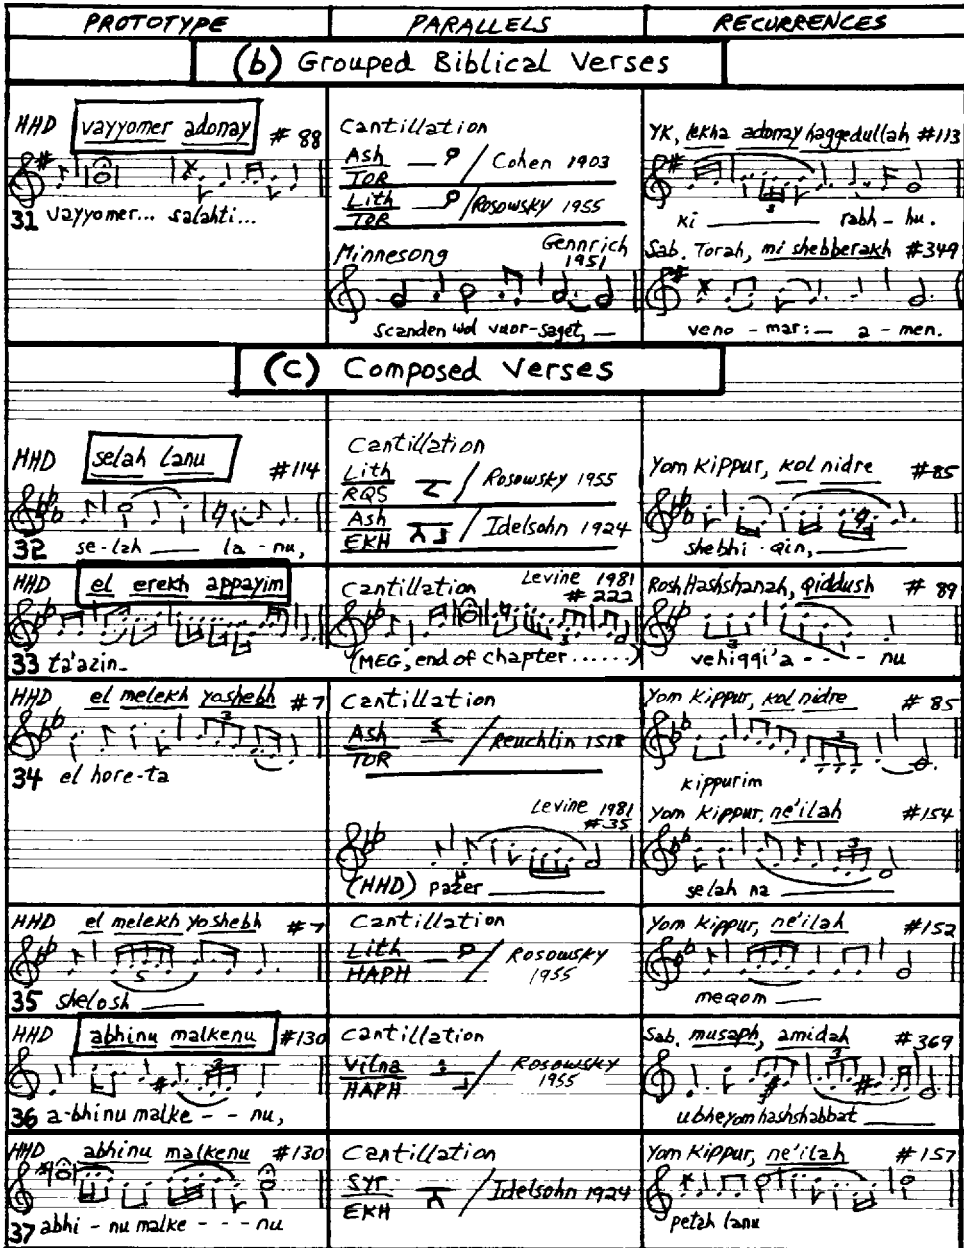 PROTOTYPE PARALLELS RECURRENCES
(b) Grouped Biblical Verses
HHD vayyomer adonay # 88
31 vayyomer... salahti...
Cantillation
Ash TOR / Cohen 1903
Lith TOR / Rosowsky 1955
Minnesong Gennrich 1951
scanden wol vuor-saget, —
YK, lekha adonay haggedullah #113
ki rabh - hu.
Sab. Torah, mi shebberakh #349
veno - mar: — a - men.
(c) Composed Verses
HHD selah lanu #114
32 se-lah la - nu,
Cantillation
Lith RQS / Rosowsky 1955
Ash EKH / Idelsohn 1924
Yom Kippur, kol nidre #85
shebhi - qin,
HHD el erekh appayim
33 ta'azin-
Cantillation Levine 1981 # 222
(MEG, end of chapter ......)
Rosh Hashshanah, qiddush # 89
vehiggi'a - - - nu
HHD el melekh yoshebh #7
34 el hore-ta
Cantillation
Ash TOR / Reuchlin 1518
Levine 1981 #35
(HHD) pazer
Yom Kippur, kol nidre # 85
kippurim
Yom Kippur, ne'ilah #154
selah na
HHD el melekh yoshebh #7
35 shelosh
5
Cantillation
Lith HAPH / Rosowsky 1955
Yom Kippur, ne'ilah #152
meqom
HHD abhinu malkenu #130
36 a-bhinu malke - - nu,
Cantillation
Vilna HAPH / Rosowsky 1955
Sab. musaph, amidah #369
ubheyom hashshabbat
HHD abhinu malkenu #130
37 abhi - nu malke - - - nu
Cantillation
SYr EKH / Idelsohn 1924
Yom Kippur, ne'ilah #157
petah lanu